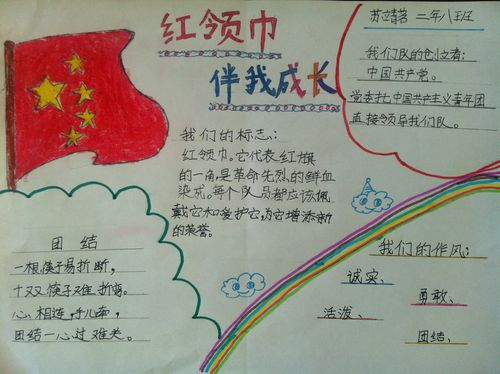 红领巾
伴我成长
苏靖茗 二年八班
我们队的创立者:
中国共产党。
党委托中国共产主义青年团
直接领导我们队。
我们的标志:
红领巾。它代表红旗
的一角,是革命先烈的鲜血
染成。每个队员都应该佩
戴它和爱护它,为它增添新
的荣誉。
团结
一根筷子易折断,
十双筷子难折弯。
心相连,手儿牵,
团结一心过难关。
我们的作风:
诚实、
勇敢、
活泼、
团结、